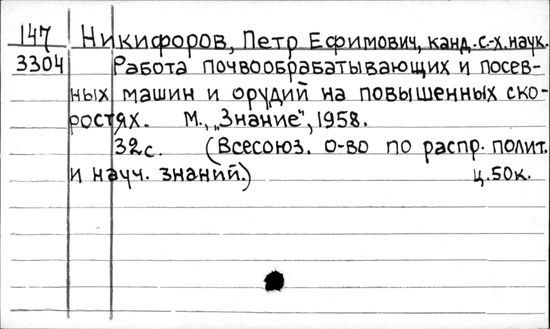 147 Никифоров, Петр Ефимович, канд. с.-х. наук.
3304 Работа почвообрабатывающих и посев-
ных машин и орудий на повышенных ско-
ростях. М., „Знание", 1958.
32 с. (Всесоюз. о-во по распр. полит.
и науч. знаний.) ц. 50к.